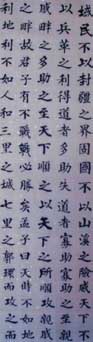 域民不以封疆之界固國不以山溪之險威天下不
以兵革之利得道者多助失道者寡助寡助之至親
戚畔之多助之至天下順之以天下之所順攻親戚
之畔故君子有不戰戰必勝矣孟子曰天時不如地
利地利不如人和三里之城七里之郭環而攻之而